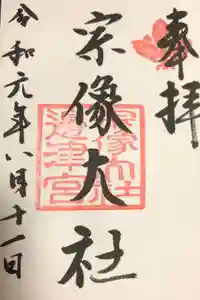 奉拝
宗像大社
令和元年八月十一日
宗像大社
邊津宮